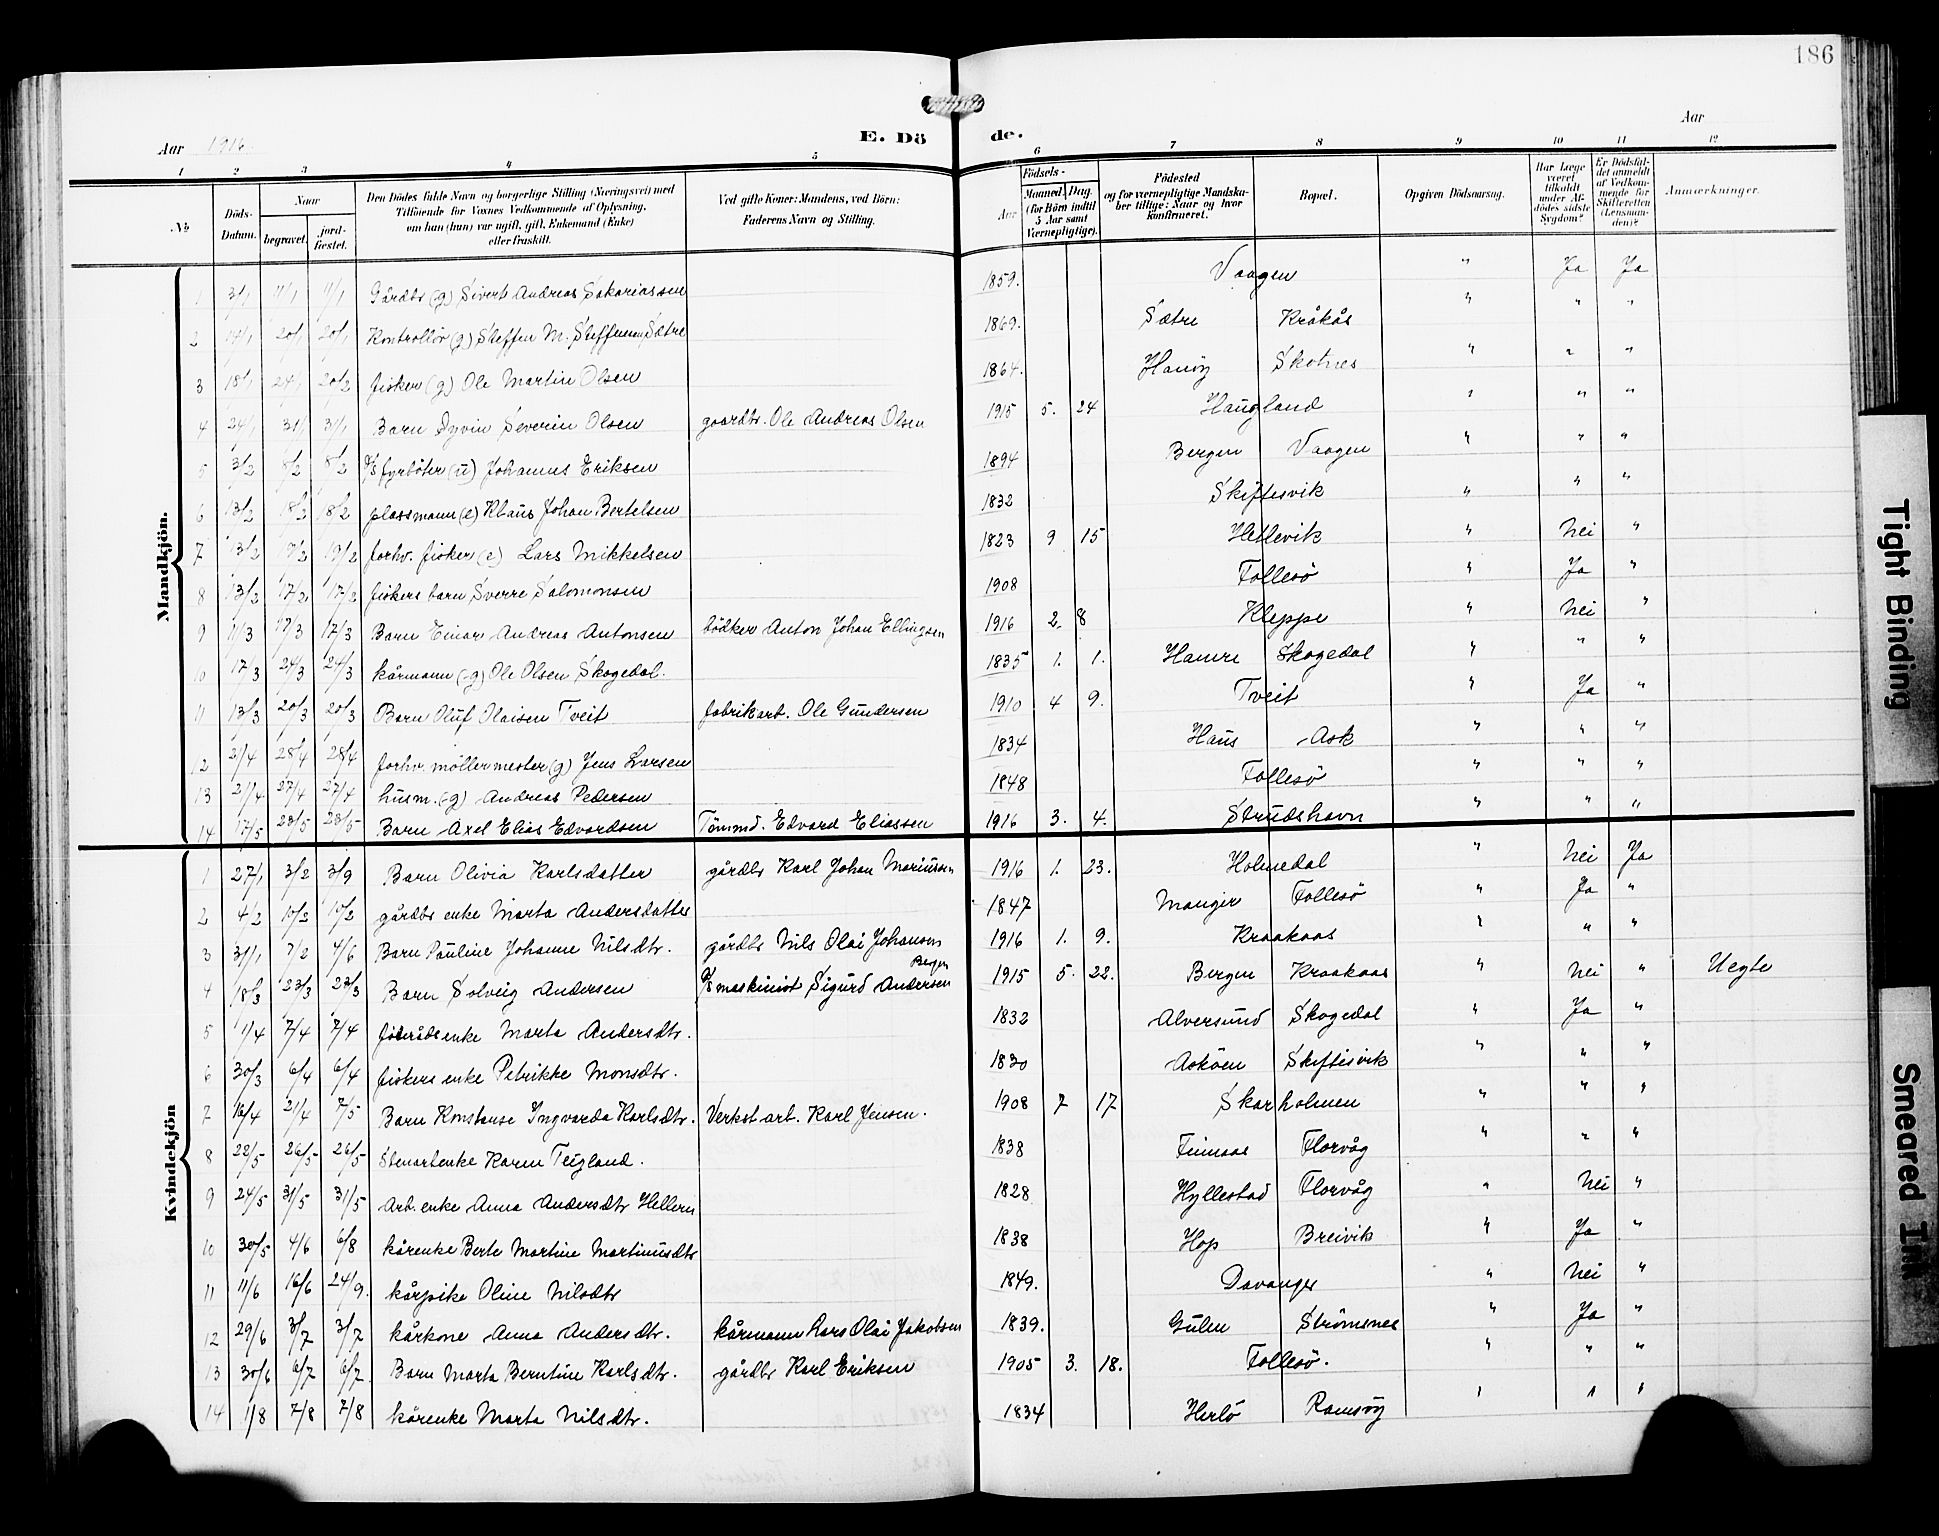 186
Aar 1916.
E. Dö de.
Aar
1 2 3 4 5 6 7 8 9 10 11 12
№
Döds-Datum.
Naar begravet. jordfæstet.
Den Dödes fulde Navn og borgerlige Stilling (Næringsvei) med Tilföiende for Voxnes Vedkommende af Oplysning, om han (hun) var ugift, gift, Enkemand (Enke) eller fraskilt.
Ved gifte Koner: Mandens, ved Börn: Faderens Navn og Stilling.
Födsels- Aar Maaned. Dag. (for Börn indtil 5 Aar samt Værnepligtige).
Födested og for værnepligtige Mandskaber tillige: Naar og hvor konfirmeret.
Bopæl.
Opgiven Dödsaarsag.
Har Læge været tilkaldt under Afdödes sidste Sygdom?
Er Dödsfaldet anmeldt af Vedkommende for Skifteretten (Lensmanden)?
Anmærkninger.
Mandkjön.
1 3/1 11/1 11/1 Gårdbr (g) Sivert Andreas Sakariassen 1859. Vaagen " Ja Ja
2 14/1 20/1 20/1 Kontrollör (g) Steffen M. Steffensen Sætre 1869. Sætre Kråkås " " "
3 18/1 24/1 20/2 fisker (g) Ole Martin Olsen 1864. Hanöy Skotnes " " "
4 24/1 31/1 31/1 Barn Öyvin Severin Olsen gaardbr. Ole Andreas Olsen 1915 5. 24 Haugland " " "
5 3/2 8/2 8/2 D/S fyrböter (u) Johannes Eriksen 1894 Bergen Vaagen " " "
6 13/2 18/2 18/2 plassmann (e) Klaus Johan Bertelsen 1832 Skiftesvik " " "
7 13/2 19/2 19/2 forhv. fisker (e) Lars Mikkelsen 1823 9 15 Hetlevik " Nei "
8 13/2 17/2 17/2 fiskers barn Sverre Salomonsen 1908 Follesö " Ja "
9 11/3 17/3 17/3 Barn Einar Andreas Antonsen bödker Anton Johan Ellingsen 1916 2. 8 Kleppe " Nei "
10 17/3 24/3 24/3 kårmann (g) Ole Olsen Skogedal. 1835 1. 1. Hamre Skogedal " " "
11 13/3 20/3 20/3 Barn Oluf Olaisen Tveit fabrikarb. Ole Gundersen 1910 4 9. Tveit " Ja "
12 21/4 28/4 28/4 forhv. möllermester (g) Jens Larsen 1834 Haus Ask " " "
13 21/4 27/4 27/4 husm. (g) Andreas Pedersen 1848 Follesö " " "
14 17/5 23/5 23/5 Barn Axel Elias Edvardsen Tömmd. Edvard Eliassen 1916 3. 4. Strudshavn " " "
Kvindekjön
1 27/1 3/2 3/9 Barn Olivia Karlsdatter gårdbr Karl Johan Mariussen 1916 1. 23. Holmedal " Nei Ja
2 4/2 10/2 10/2 gårdbr enke Marta Andersdatter 1847 Manger Follesö " Ja "
3 31/1 7/2 4/6 Barn Pauline Johanne Nilsdtr. gårdbr Nils Olai Johansen 1916 1. 9. Kraakaas " " "
4 18/3 23/3 23/3 Barn Solveig Andersen D/S maskinist Sigurd Andersen Bergen 1915 5. 22. Bergen Kraakaas " Nei " Uegte
5 1/4 7/4 7/4 föderådsenke Marta Andersdtr. 1832 Alversund Skogedal " Ja "
6 30/3 6/4 6/4 fiskers enke Petrikke Monsdtr. 1830 Asköen Skiftesvik " " "
7 16/4 21/4 7/5 Barn Konstanse Ingvarda Karlsdtr. Verkst.arb. Karl Jensen. 1908 7 17 Skarholmen " " "
8 22/5 26/5 26/5 Stuartenke Karen Teigland. 1838 Finnaas Florvåg " " "
9 24/5 31/5 31/5 Arb. enke Anna Andersdtr Hellern 1828 Hyllestad Florvåg " Nei "
10 30/5 4/6 6/8 kårenke Berte Martine Martinusdtr 1838 Hop Breivik " Ja "
11 11/6 16/6 24/9. kårpike Oline Nilsdtr 1849. Davanger " Nei "
12 29/6 3/7 3/7 kårkone Anna Andersdtr. kårmann Lars Olai Jakobsen 1839. Gulen Strömsnes " Ja "
13 30/6 6/7 6/7. Barn Marta Berntine Karlsdtr. gårdbr Karl Eriksen 1905 3. 18. Follesö. " " "
14 1/8 7/8 7/8 kårenke Marta Nilsdtr. 1834 Herlö Ramsöy " " "
Tight Binding
Smeared Ink